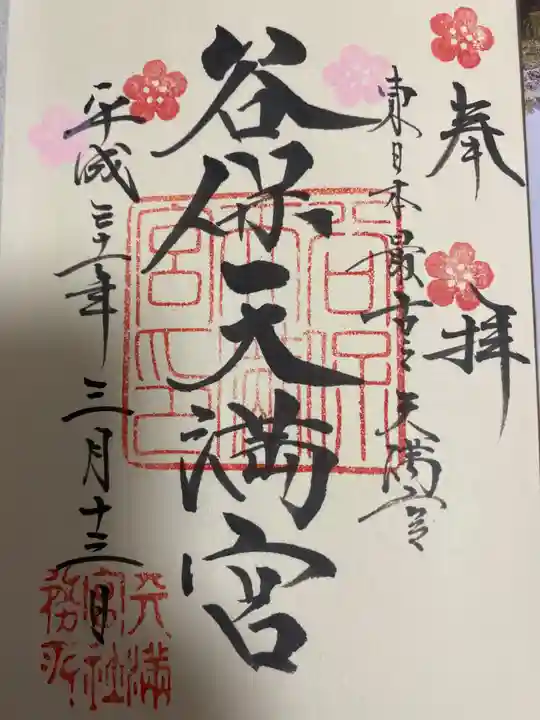 奉拝
東日本最古之天満宮
谷保天満宮
平成三十一年三月十三日
谷保天満宮之印
天満宮社務所